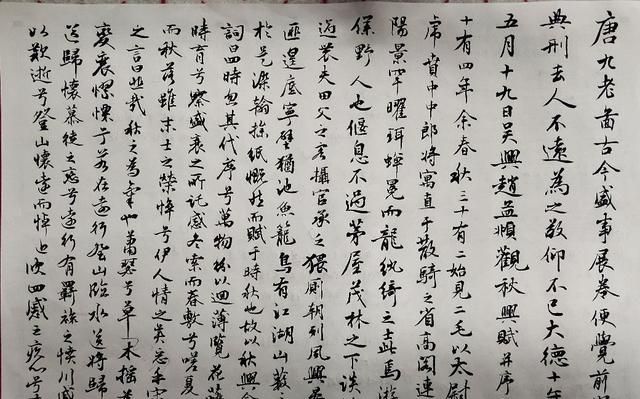 唐九老圖古今盛事展卷便覺前
典刑去人不遠為之敬仰不已大德十年
五月十九日吳興趙孟頫觀秋興賦并序
十有四年余春秋三十有二始見二毛以太尉
席賁中中郎將寓直于散騎之省高閣連
陽景罕曜珥蟬冕而龍紈綺之士此焉遊
僕野人也偃息不過茅屋茂林之下談
過農夫田父之客攝官承之猥廁朝列夙興
匪遑底寧譬猶池魚籠鳥有江湖山藪
於是染翰操紙慨然而賦于時秋也故以秋興命
詞曰四時忽其代序兮萬物紛以迴薄覽花蒔
時育兮察盛衰之所託感冬索而春敷兮嗟夏
而秋落雖末士之榮悴兮伊人情之美惡
之言曰悲哉秋之為氣也蕭瑟兮草木搖
變衰憀慄兮若在遠行登山臨水送將歸
送歸懷慕徒之戀兮遠行有羈旅之憤川感
以歎逝兮登山懷遠而悼近彼四慼之疚心兮